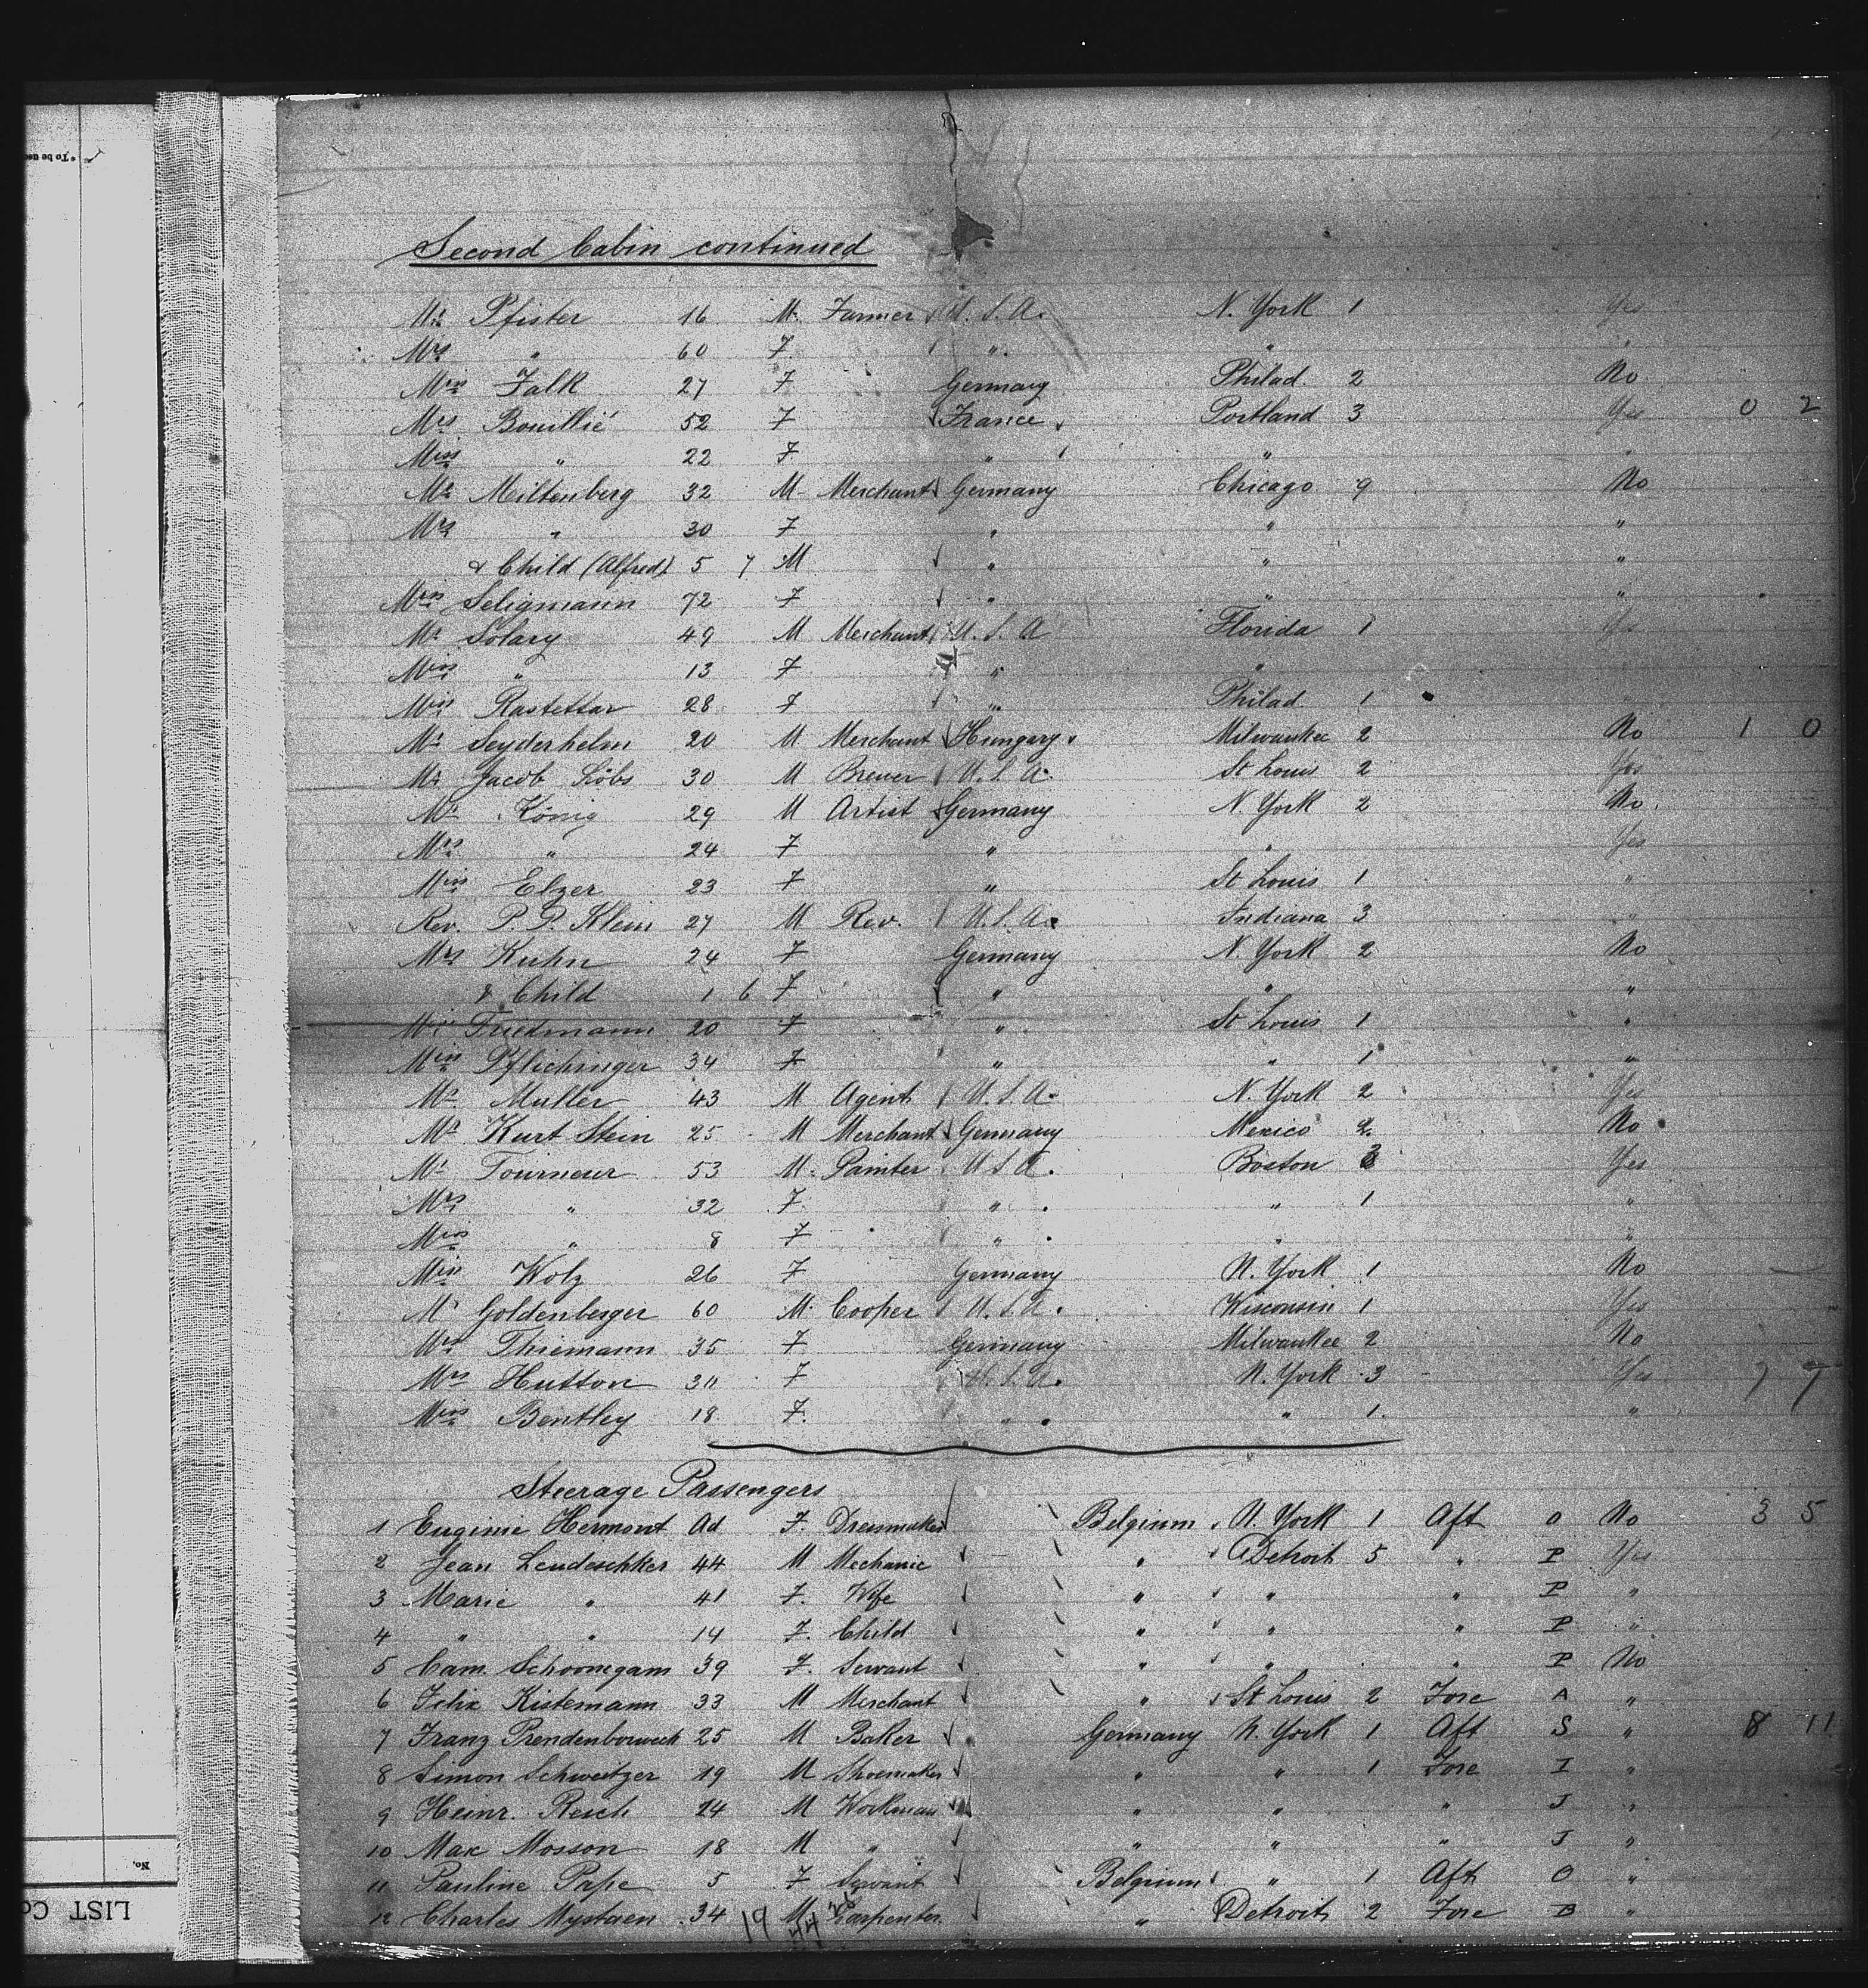 * To be use
Second Cabin continued
Mr. Pfister 16 M. Farmer U. S. A. N. York 1 Yes
Mrs " 60 F. " "
Miss Falk 27 F Germany Philad. 2 No
Mrs Bouillié 52 F France Portland 3 Yes 0 2
Miss " 22 F. " " "
Mr Miltenberg 32 M Merchant Germany Chicago 9 No
Mrs " 30 F " " "
& Child (Alfred) 5 7 M " " "
Seligmann 72 F " " "
Mr Solary 49 M Merchant U. S. A Florida 1 Yes
Miss " 13 F " "
Miss Rastettar 28 F " Philad. 1 "
Mr Seyderhelm 20 M Merchant Hungary Milwaukee 2 No 1 0
Mr Jacob Löbs 30 M Brewer U. S. A. St Louis 2 Yes
Mr König 29 M Artist Germany N. York 2 No.
Mrs " 24 F " " Yes
Miss Elzer 23 F " St Louis 1 "
Rev. P. P. Klein 27 M Rev. U. S. A. Indiana 3 "
Mrs Kuhn 24 F Germany N. York 2 No
& Child 1 6 F " " "
Friedmann 20 F " St Louis 1 "
Miss Pflichinger 34 F " " 1 "
Mr Muller 43 M Agent U. S. A. N. York 2 Yes
Mr Kurt Stein 25 M Merchant Germany Mexico 2. No
Mr Tourneur 53 M. Painter U S A. Boston 3 Yes
Mrs " 32 F. " " 1 "
Miss " 8 F " " "
Miss Wolz 26 F Germany N. York 1 No
Mr Goldenberger 60 M. Cooper U. S. A. Wisconsin 1 Yes
Thiemann 35 F Germany Milwaukee 2 No
Mrs Hutton 30 F U. S. A. N. York 3 Yes 7 7
Miss Bentley 18 F. " " 1. "
Steerage Passengers
1 Euginie Hermont Ad F. Dressmaker Belgium N. York 1 Aft O No 3 5
2 Jean Leudeschker 44 M Mechanic " Detroit 5 " P Yes
3 Marie " 41 F. Wife " " " P "
4 " " 14 F. Child " " " P "
5 Cam. Schoonegam 39 F. Servant " " " P No
6 Felix Kistemann 33 M Merchant " St Louis 2 Fore A "
7 Franz Prendenborweck 25 M Baker Germany N. York 1 Aft S " 8 11
8 Simon Schweitzer 19 M Shoemaker " " 1 Fore I "
9 Heinr. Reich 24 M Workman " " " J "
10 Max Mosson 18 M " " " " J "
11 Pauline Pape 5 F Servant Belgium " 1 Aft O "
12 Charles Mystaen 34 M Carpenter. " Detroit 2 Fore B "
19 44 25
No.
LIST Co